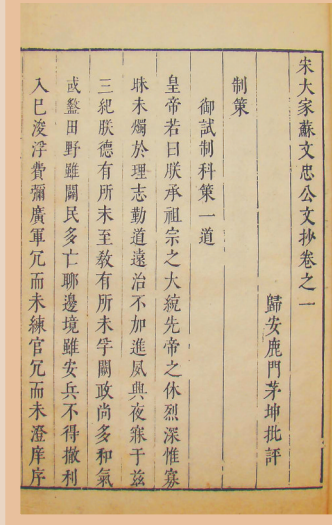 宋大家蘇文忠公文抄卷之一
歸安鹿門茅坤批評
制策
御試制科策一道
皇帝若曰朕承祖宗之大統先帝之休烈深惟寡
昧未燭於理志勤道遠治不加進夙興夜寐于兹
三紀朕德有所未至敎有所未孚闕政尚多和氣
或盭田野雖闢民多亡聊邊境雖安兵不得撤利
入已浚浮費彌廣軍冗而未練官冗而未澄庠序